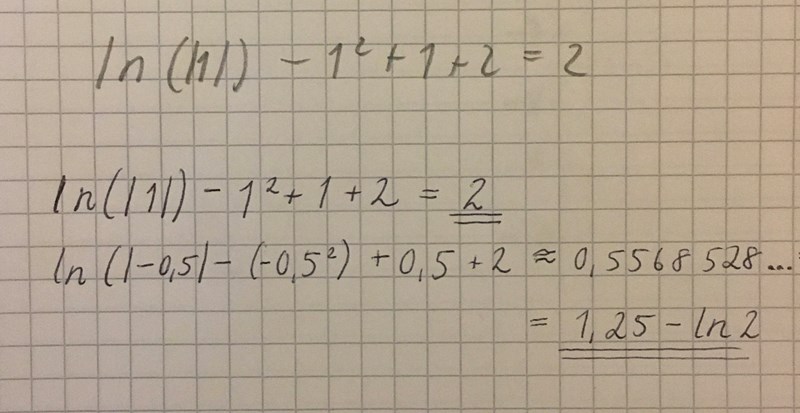 ln(|1|) - 1² + 1 + 2 = 2
ln(|1|) - 1² + 1 + 2 = 2
ln(|-0,5| - (-0,5²) + 0,5 + 2 ≈ 0,5568528...
= 1,25 - ln2